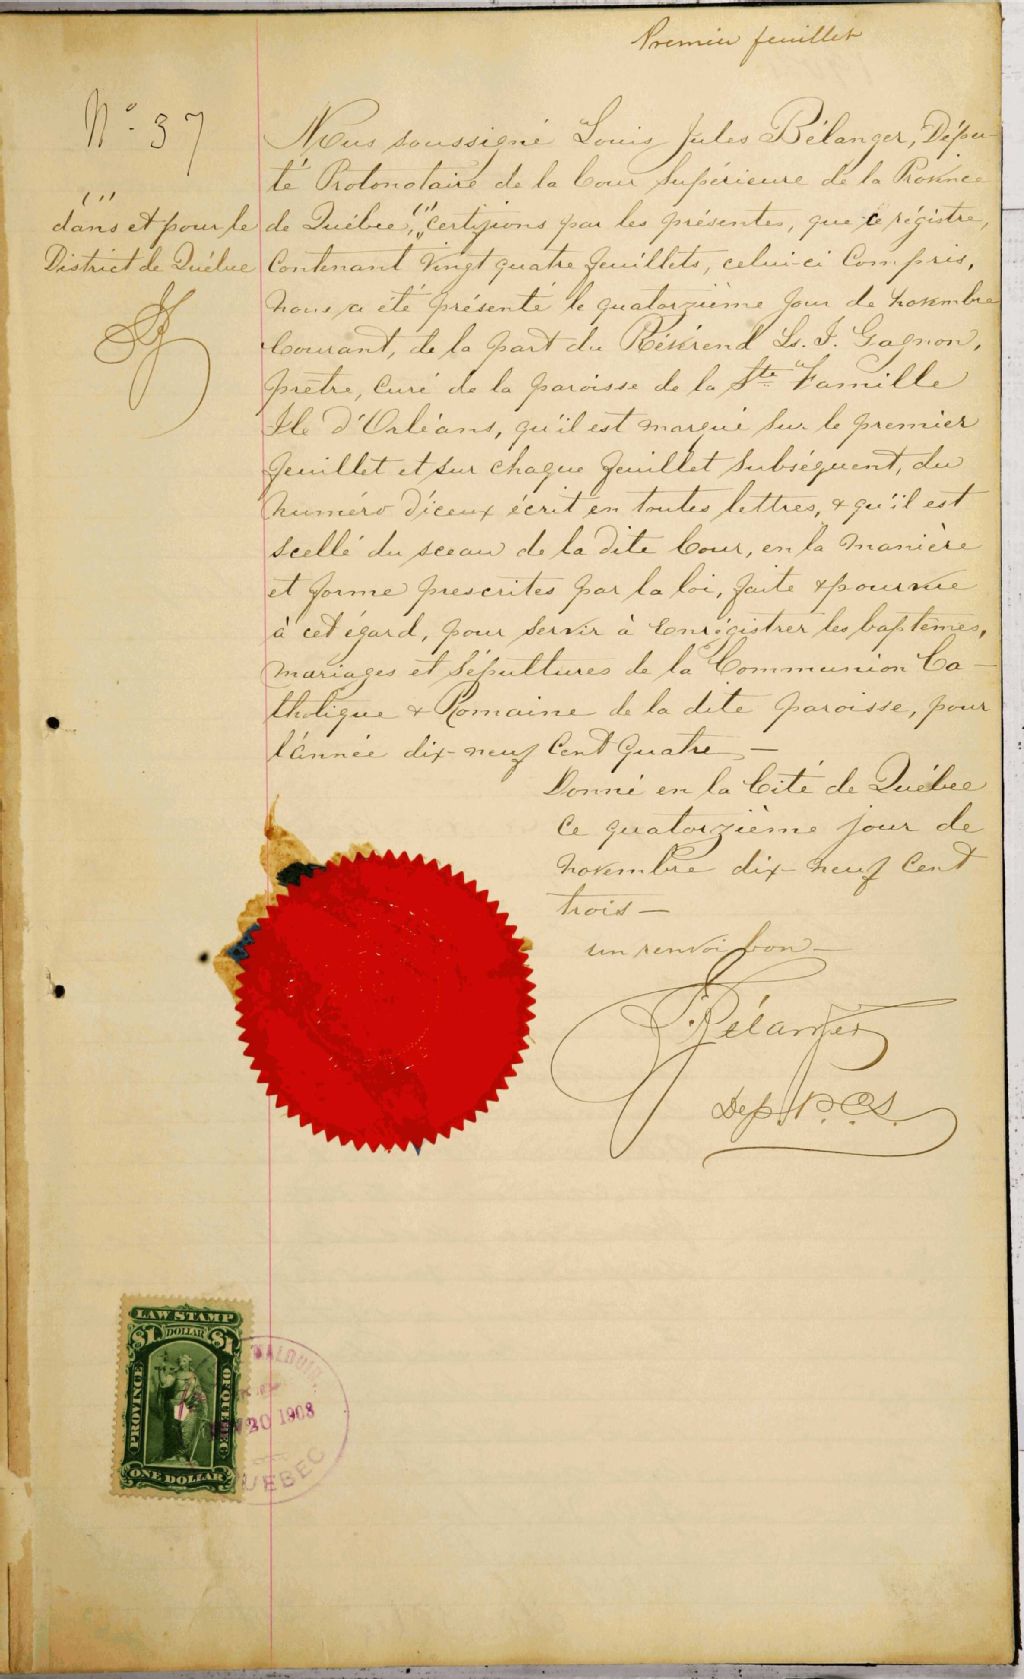 Premier feuillet
No. 37
Nous soussigné Louis Jules Bélanger, Dépu-
té Protonotaire de la Cour Supérieure de la Province
de Québec, (") certifions par les présentes, que ce régistre,
(")
dans et pour le
District de Québec
Contenant Vingt quatre feuillets, celui-ci Compris,
nous a été présenté le quatorzième jour de novembre
Courant, de la part du Révérend Ls. J. Gagnon,
prètre, curé de la paroisse de la Ste Famille
Ile d'Orléans, qu'il est marqué sur le premier
feuillet et sur chaque feuillet subséquent, du
numéro d'iceux écrit en toutes lettres, & qu'il est
scellé du sceau de la dite Cour, en la manière
et forme prescrites par la loi, faite & pourvue
à cet égard, pour servir à Enrégistrer les baptemes,
mariages et Sépultures de la Communion Ca-
tholique & Romaine de la dite paroisse, pour
l'année dix-neuf Cent quatre —
Donné en la Cité de Québec
Ce quatorzième jour de
novembre dix-neuf Cent
trois —
un renvoi bon —
Bélanger
Dep. P.C.S.
LAW STAMP
$1 DOLLAR $1
PROVINCE OF QUEBEC
ONE DOLLAR
20 1903
QUEBEC